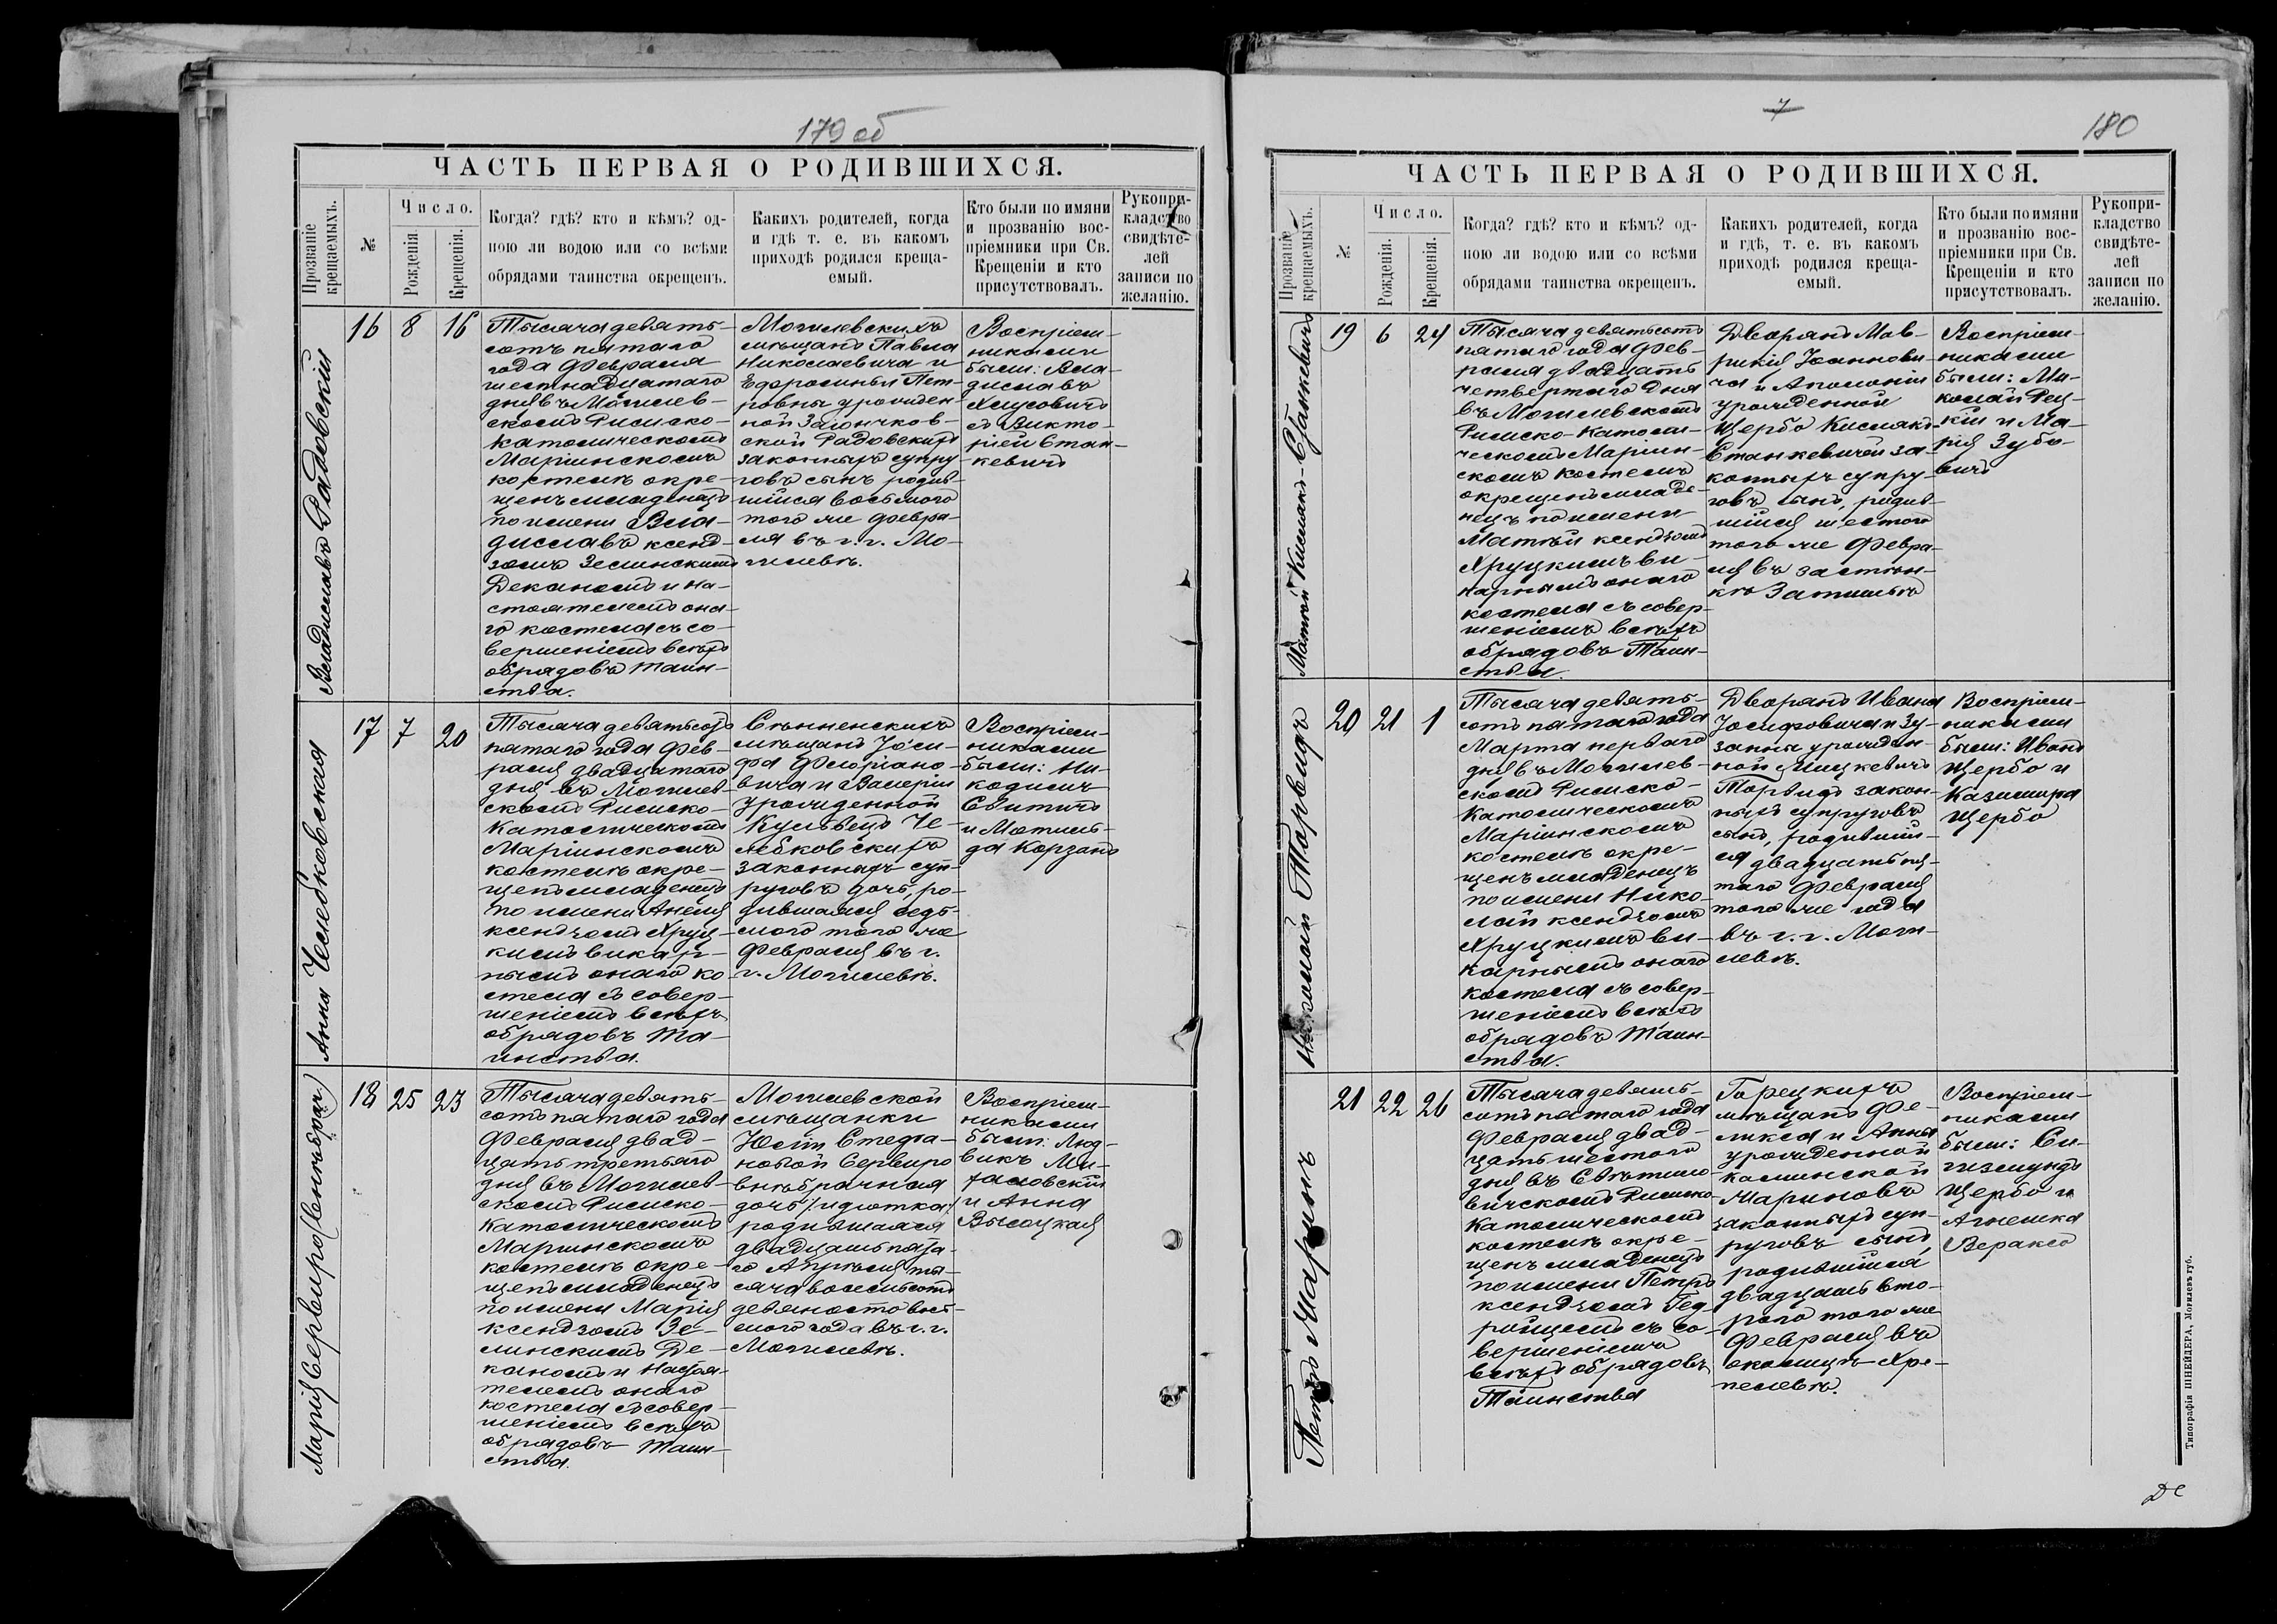 179 об
ЧАСТЬ ПЕРВАЯ О РОДИВШИХСЯ.
Прозваніе крещаемыхъ.
№
Число.
Рожденія.
Крещенія.
Когда? гдѣ? кто и кѣмъ? од-
ною ли водою или со всѣми
обрядами таинства окрещенъ.
Какихъ родителей, когда
и гдѣ т. е. въ какомъ
приходѣ родился креща-
емый.
Кто были по имяни
и прозванію вос-
пріемники при Св.
Крещеніи и кто
присутствовалъ.
Рукопри-
кладство
свидѣте-
лей
записи по
желанію.
Владиславъ Радовскій
16 8 16
Тысяча девять-
сотъ пятаго
года Февраля
шестнадцатаго
дня въ Могилев-
скомъ Римско-
Католическомъ
Маріинскомъ
костелѣ окре-
щенъ младенецъ
по имени Вла-
диславъ ксенд-
зомъ Зелинскимъ
Деканомъ и на-
стоятелемъ она-
го костела съ со-
вершеніемъ всѣхъ
обрядовъ таин-
ства.
Могилевскихъ
мѣщанъ Павла
Николаевича и
Ефросиньи Пет-
ровны урожден-
ной
законныхъ супру-
говъ сынъ родив-
шійся восьмого
того же Февра-
ля въ г. г. Мо-
гилевѣ.
Воспріем-
никами
были: Вла-
диславъ
съ Викто-
ріей Стан-
кевичъ
Анна Челебковская
17 7 20
Тысяча девятьсотъ
пятаго года Фев-
раля двадцатаго
дня въ Могилев-
скомъ Римско-
Католическомъ
Маріинскомъ
костелѣ окре-
щенъ младенецъ
по имени Анеля
ксендзомъ Хруц-
кимъ викар-
нымъ онаго ко-
стела съ совер-
шеніемъ всѣхъ
обрядовъ Та-
инства.
Сѣнненскихъ
мѣщанъ Іоси-
фа Флоріано-
вича и Валеріи
урожденной
Че-
лебковскихъ
законныхъ суп-
руговъ дочь, ро-
дившаяся седь-
мого того же
Февраля въ г.
г. Могилевѣ.
Воспріем-
никами
были: Ни-
кодимъ
Свитичъ
и Матиль-
да Корзонъ
Марія Сервиро (внѣбрач)
18 25 23
Тысяча девять-
сотъ пятаго года
Февраля двад-
цать третьяго
дня въ Могилев-
скомъ Римско-
Католическомъ
Маріинскомъ
костелѣ окре-
щенъ младенецъ
по имени Марія
ксендзомъ Зе-
линскимъ Де-
каномъ и Настоя-
телемъ онаго
костела съ совер-
шеніемъ всѣхъ
обрядовъ Таин-
ства.
Могилевской
мѣщанки
Юліи Стефа-
новой Сервиро
внѣбрачная
дочь /идіотка/
родившаяся
двадцать пята-
го Апрѣля ты-
сяча восемьсотъ
девяносто вось-
мого года въ г. г.
Могилевѣ.
Воспріем-
никами
были: Люд-
викъ Ми-
халовскій
и Анна
Высоцкая
7
180
ЧАСТЬ ПЕРВАЯ О РОДИВШИХСЯ.
Прозваніе крещаемыхъ.
№
Число.
Рожденія.
Крещенія.
Когда? гдѣ? кто и кѣмъ? од-
ною ли водою или со всѣми
обрядами таинства окрещенъ.
Какихъ родителей, когда
и гдѣ, т. е. въ какомъ
приходѣ родился креща-
емый.
Кто были по имяни
и прозванію вос-
пріемники при Св.
Крещеніи и кто
присутствовалъ.
Рукопри-
кладство
свидѣте-
лей
записи по
желанію.
Матѳей Кислякъ-Станкевичъ
19 6 24
Тысяча девятьсотъ
пятаго года Фев-
раля двадцать
четвертаго Дня
въ Могилевскомъ
Римско-Католи-
ческомъ Маріин-
скомъ костелѣ
окрещенъ младе-
нецъ по имени
Матѳей ксендзомъ
Хруцкимъ ви-
карнымъ онаго
костела съ совер-
шеніемъ всѣхъ
обрядовъ Таин-
ства.
Дворянъ Мав-
рикія Іоаннови-
ча и Аполоніи
урожденной
Щербо Кислякъ-
Станкевичей за-
конныхъ супру-
говъ сынъ, родив-
шійся шестого
того же Февра-
ля въ застѣн-
кѣ Затишьѣ
Воспріем-
никами
были: Ми-
колай Рец-
кій и Ма-
рія Зубо-
вичъ
Николай Торвидъ
20 21 1
Тысяча девять-
сотъ пятаго года
Марта перваго
дня въ Могилев-
скомъ Римско-
Католическомъ
Маріинскомъ
костелѣ окре-
щенъ младенецъ
по имени Нико-
лай ксендзомъ
Хруцкимъ ви-
карнымъ онаго
костела съ совер-
шеніемъ всѣхъ
обрядовъ Таин-
ства.
Дворянъ Ивана
Іосифовича и Зу-
занны урожден-
ной Мицкевичъ
Торвидъ закон-
ныхъ супруговъ
сынъ, родившій-
ся двадцать
Февраля
того же года
въ г. г. Моги-
левѣ.
Воспріем-
никами
были: Иванъ
Щербо и
Казимира
Щербо
Петръ Маринъ
21 22 26
Тысяча девять-
сотъ пятаго года
Февраля двад-
цать шестого
дня въ Свѣтило-
вичскомъ Римско-
Католическомъ
костелѣ окре-
щенъ младенецъ
по имени Петръ
ксендзомъ Гед-
ройцемъ съ со-
вершеніемъ
всѣхъ обрядовъ
Таинства
Горецкихъ
мѣщанъ Фе-
ликса и Анны
урожденной
Калинской
Мариновъ
законныхъ суп-
руговъ сынъ,
родившійся
двадцать вто-
рого того же
Февраля въ
околицѣ Хре-
пелевѣ.
Воспріем-
никами
были: Си-
гизмундъ
Щербо и
Агнешка
Вераксо
Типографія ШНЕЙДЕРА, Могилевъ губ.